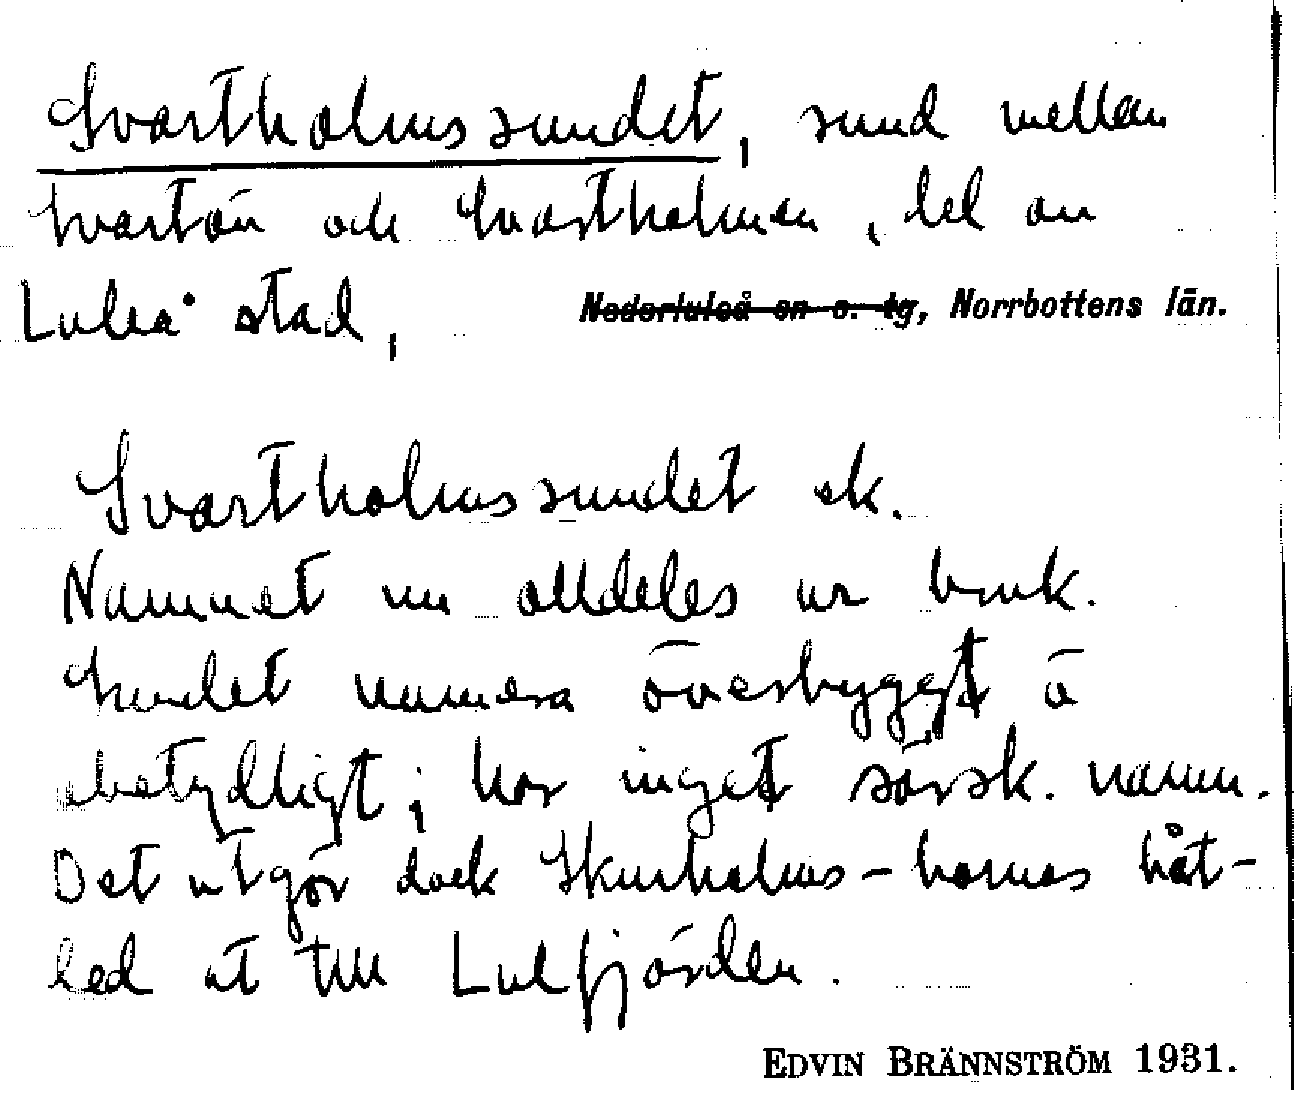 Svartholmssundet, sund mellan
Svartön och Svartholmen, del av
Luleå stad, Nederluleå sn o. tg, Norrbottens län.
Svartholmssundet ek.
Namnet nu alldeles ur bruk.
Sundet numera överbyggt å
obetydligt; har inget särsk. namn.
Det utgör dock Skurholms-bornas båt-
led ut till Lulfjärden.
EDVIN BRÄNNSTRÖM 1931.